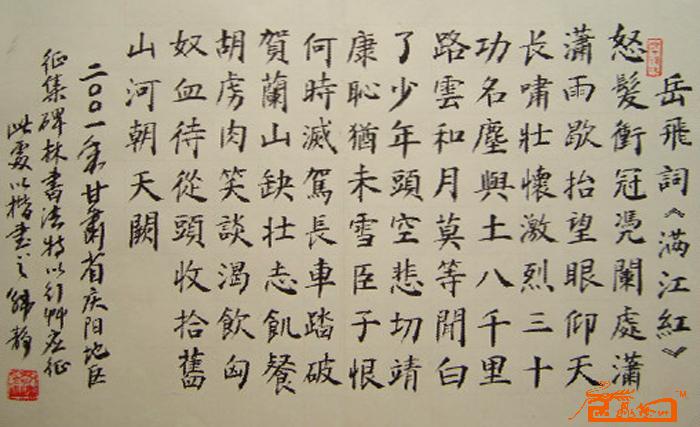 岳飛詞《满江紅》
怒髮衝冠凭闌處瀟
瀟雨歇抬望眼仰天
長嘯壯懷激烈三十
功名塵與土八千里
路雲和月莫等閒白
了少年頭空悲切靖
康恥猶未雪臣子恨
何時滅駕長車踏破
賀蘭山缺壯志飢餐
胡虜肉笑談渴飲匈
奴血待從頭收拾舊
山河朝天闕
二〇〇一年甘肅省庆阳地区
征集碑林書法特以行艸应征
此處以楷書之 静